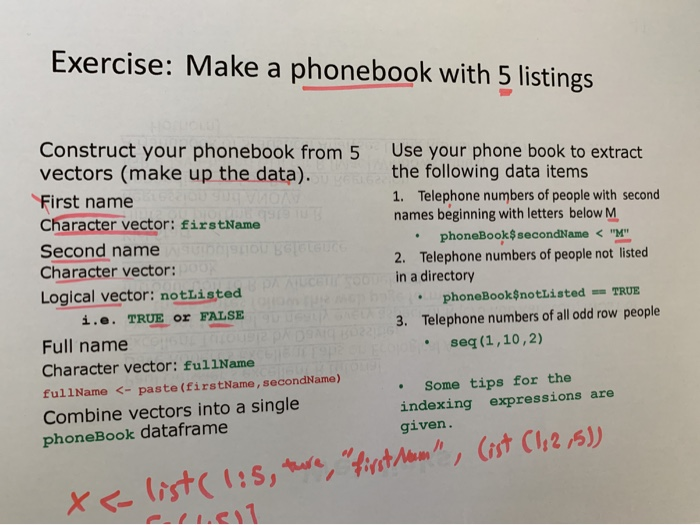 Exercise: Make a phonebook with 5 listings
Construct your phonebook from 5
vectors (make up the data).
First name
Character vector: firstName
Second name
Character vector:
Logical vector: notListed
i.e. TRUE or FALSE
Full name
Character vector: fullName
fullName <- paste(firstName,secondName)
Combine vectors into a single
phoneBook dataframe
Use your phone book to extract
the following data items
1. Telephone numbers of people with second
names beginning with letters below M
• phoneBook$secondName < "M"
2. Telephone numbers of people not listed
in a directory
• phoneBook$notListed == TRUE
3. Telephone numbers of all odd row people
• seq(1,10,2)
• Some tips for the
indexing expressions are
given.
x <- list( 1:5, "first Nam", list (1:2,5))